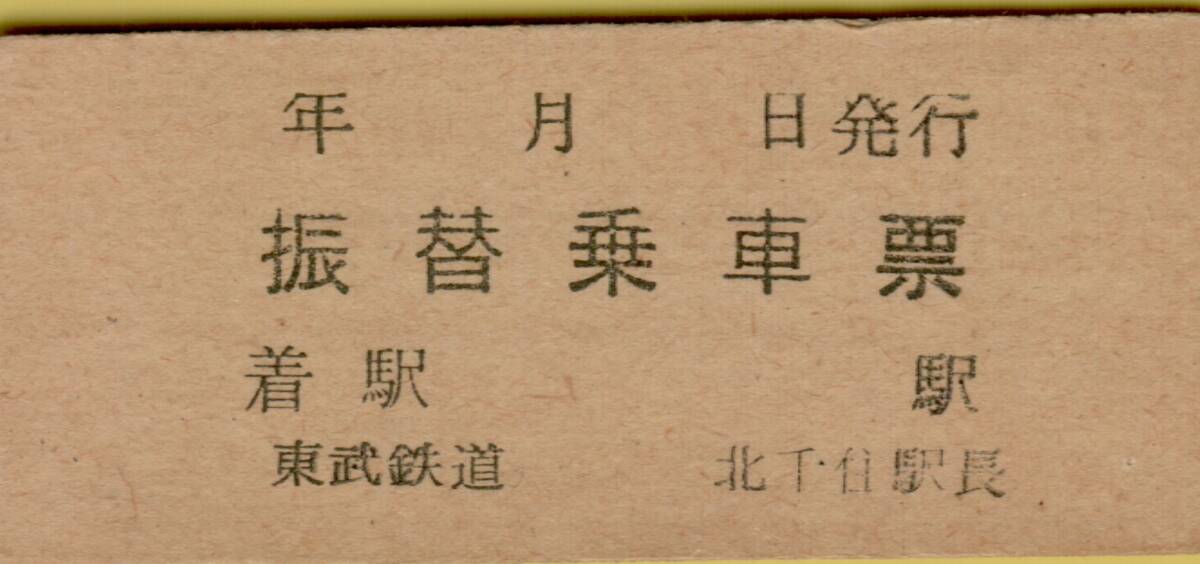 年 月 日発行
振替乗車票
着駅 駅
東武鉄道 北千住駅長